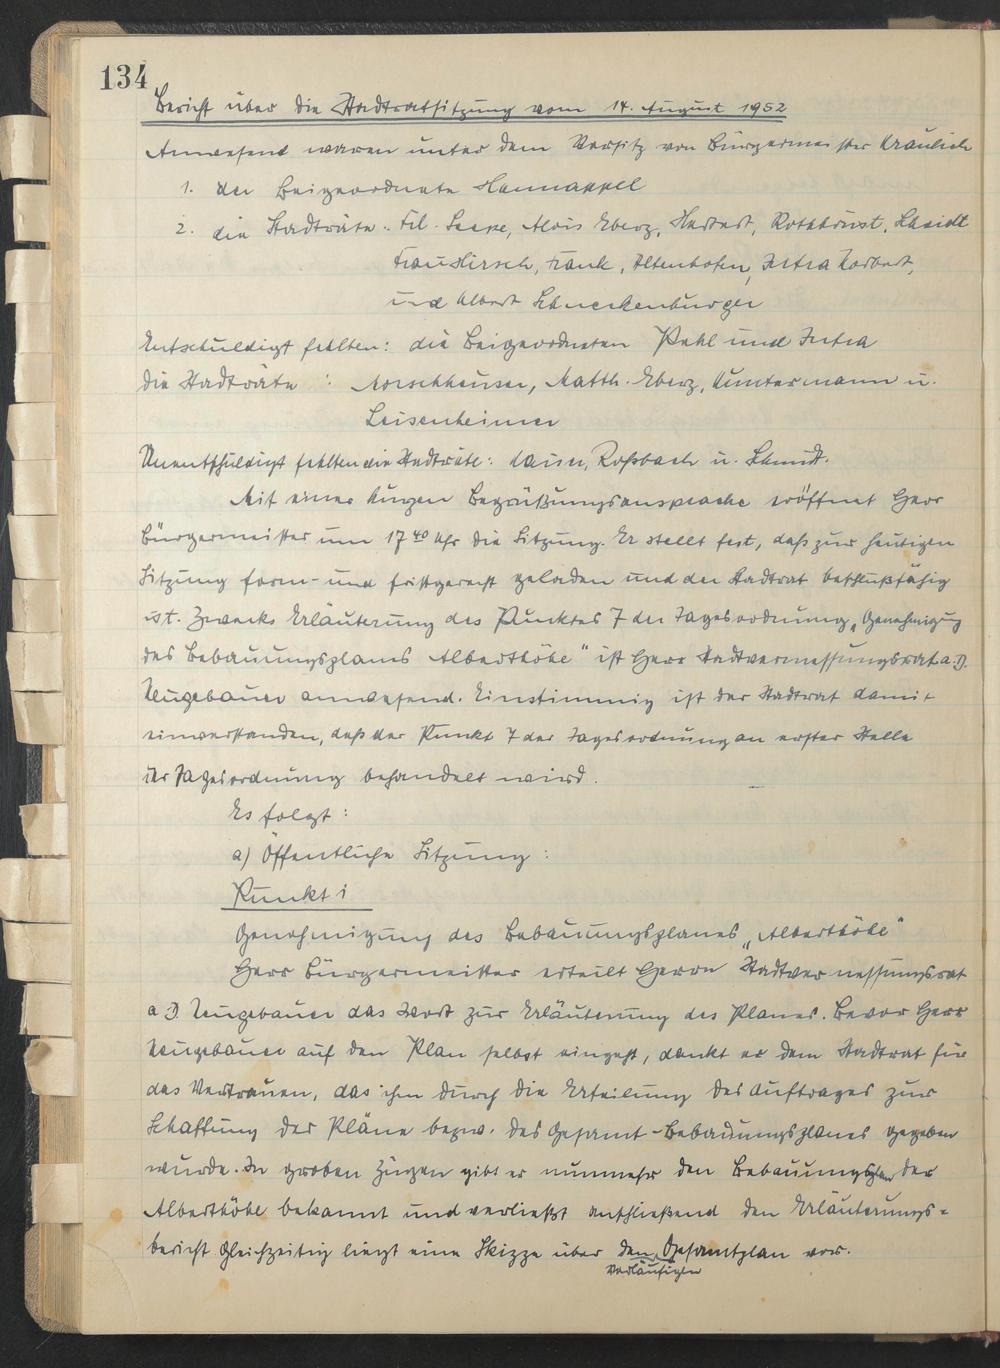 134
Bericht über die Stadtratsitzung vom 14. August 1952
Anwesend waren unter dem Vorsitz von Bürgermeister Kraulich
1. der Beigeordnete Hannappel
2. die Stadträte: Fil. Alois Eberz, Herbert, Rothbrust, Scheidt
Frau Hirsch, Frank, Altenhofen, Norbert,
und Albert Schneckenburger
Entschuldigt fehlten: die Beigeordneten Pehl und
die Stadträte: Morschhäuser, Matth. Eberz, Kuntermann u.
Leisenheimer
Unentschuldigt fehlten die Stadträte: Roßbach u. Schmidt.
Mit einer kurzen Begrüßungsansprache eröffnet Herr
Bürgermeister um 17 40 Uhr die Sitzung. Er stellt fest, daß zur heutigen
Sitzung form- und fristgerecht geladen und der Stadtrat beschlußfähig
ist. Zwecks Erläuterung des Punktes 7 der Tagesordnung „Genehmigung
des Bebauungsplanes Alberthöhe" ist Herr Stadtvermessungsrat a.D.
Neugebauer anwesend. Einstimmig ist der Stadtrat damit
einverstanden, daß der Punkt 7 der Tagesordnung an erster Stelle
der Tagesordnung behandelt wird.
Es folgt:
a) Öffentliche Sitzung:
Punkt 1
Genehmigung des Bebauungsplanes „Alberthöhe"
Herr Bürgermeister erteilt Herrn Stadtvermessungsrat
a D Neugebauer das Wort zur Erläuterung des Planes. Bevor Herr
Neugebauer auf den Plan selbst eingeht, dankt er dem Stadtrat für
das Vertrauen, das ihm durch die Erteilung des Auftrages zur
Schaffung der Pläne bezw. des Gesamt-Bebauungsplanes gegeben
wurde. In groben Zügen gibt er nunmehr den Bebauungsplan der
Alberthöhe bekannt und verließt anschließend den Erläuterungs=
bericht gleichzeitig liegt eine Skizze über den Gesamtplan vor.
vorläufigen